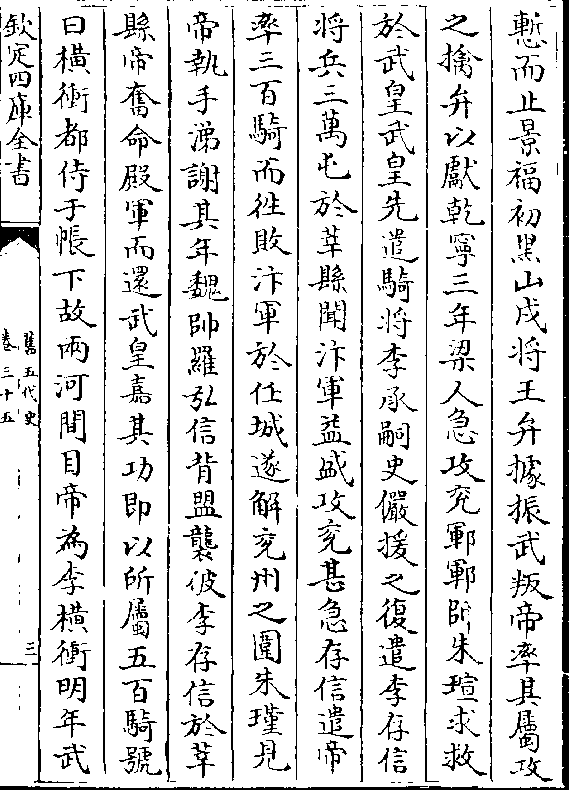 慙而止景福初黒山戍將王弁據振武叛帝率其屬攻
之擒弁以獻乾寧三年梁人急攻兖鄆鄆帥朱瑄求救
於武皇武皇先遣騎將李承嗣史儼援之復遣李存信
將兵三萬屯於莘縣聞汴軍益盛攻兖甚急存信遣帝
率三百騎而徃敗汴軍於任城遂解兖州之圍朱瑾見
帝執手涕謝其年魏帥羅弘信背盟襲彼李存信於莘
縣帝奮命殿軍而還武皇嘉其功即以所屬五百騎號
曰横衝都侍于帳下故兩河間目帝為李横衝明年武
欽定四庫全書
舊五代史
卷三十五
三